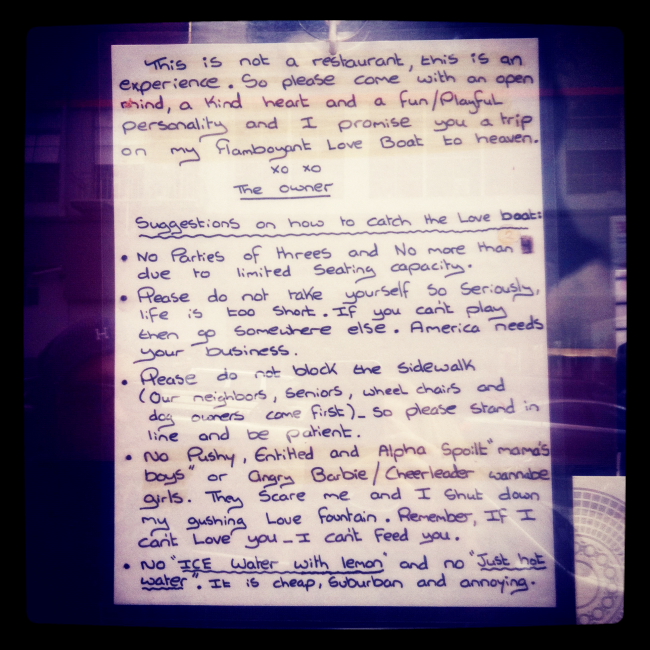 This is not a restaurant, this is an
experience. So please come with an open
mind, a Kind heart and a fun/Playful
personality and I promise you a trip
on my flamboyant Love Boat to heaven.
xo xo
The owner
Suggestions on how to catch the Love boat:
• No Parties of threes and No more than
due to limited seating capacity.
• Please do not take yourself so seriously,
life is too short. If you can't play
then go somewhere else. America needs
your business.
• Please do not block the sidewalk
(Our neighbors, seniors, wheel chairs and
dog owners come first)_ so please stand in
line and be patient.
• No Pushy, Entitled and Alpha Spoilt "mama's
boys" or angry Barbie/Cheerleader wannabe
girls. They scare me and I shut down
my gushing Love fountain. Remember, If I
can't Love you_I can't feed you.
• No "ICE Water with lemon" and no "Just hot
water". It is cheap, suburban and annoying.